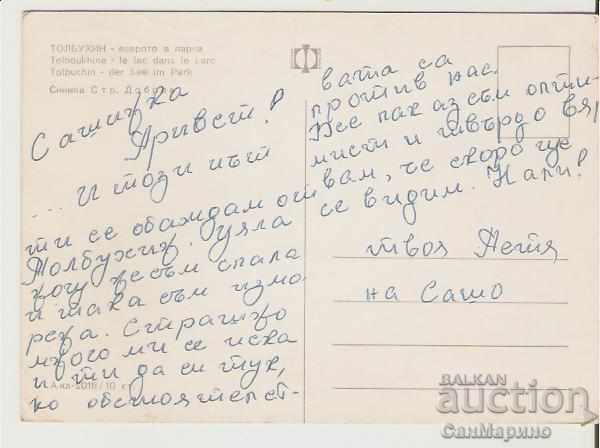 ТОЛБУХИН - езерото в парка
Tolboukhine - le lac dans le parc
Tolbuchin - der See im Park
Снимка Стр. Добрев
Сашичка
Привет!
... И този път
ти се обаждам от
Толбухин. Цяла
нощ не съм спала
и така съм измо
рена. Страшно
много ми се иска
и ти да си тук,
но обстоятелст-
вата са
против нас.
Все пак аз съм опти-
мист и твърдо вяр
вам, че скоро ще
се видим. Нали!
твоя Петя
на Сашо
А-кл-2018/10 ст
BALKAN
auction
СанМарино